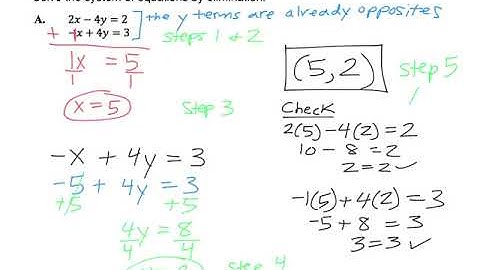 Solve the system of equations by elimination.
A. 2x − 4y = 2 ] the y terms are already opposites
+ -1x + 4y = 3 steps 1 & 2
1x = 5
1 1
x = 5 step 3
-x + 4y = 3
-5 + 4y = 3
+5 +5
4y = 8
4 4
step 4
(5, 2) step 5
Check
2(5) - 4(2) = 2
10 - 8 = 2
2 = 2 ✓
-1(5) + 4(2) = 3
-5 + 8 = 3
3 = 3 ✓